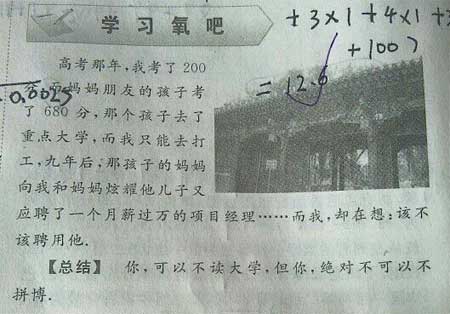 学习氧吧
+3×1+4×1+
+100)
=12.6
高考那年,我考了200
而妈妈朋友的孩子考
0.0025
了680分,那个孩子去了
重点大学,而我只能去打
工,九年后,那孩子的妈妈
向我和妈妈炫耀他儿子又
应聘了一个月薪过万的项目经理……而我,却在想:该不
该聘用他.
【总结】 你,可以不读大学,但你,绝对不可以不
拼博.